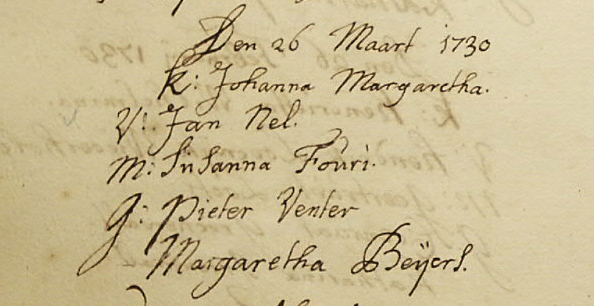 Den 26 Maart 1730
K: Johanna Margaretha.
V: Jan Nel.
M: Susanna Fouri.
G: Pieter Venter
Margaretha Beÿers.